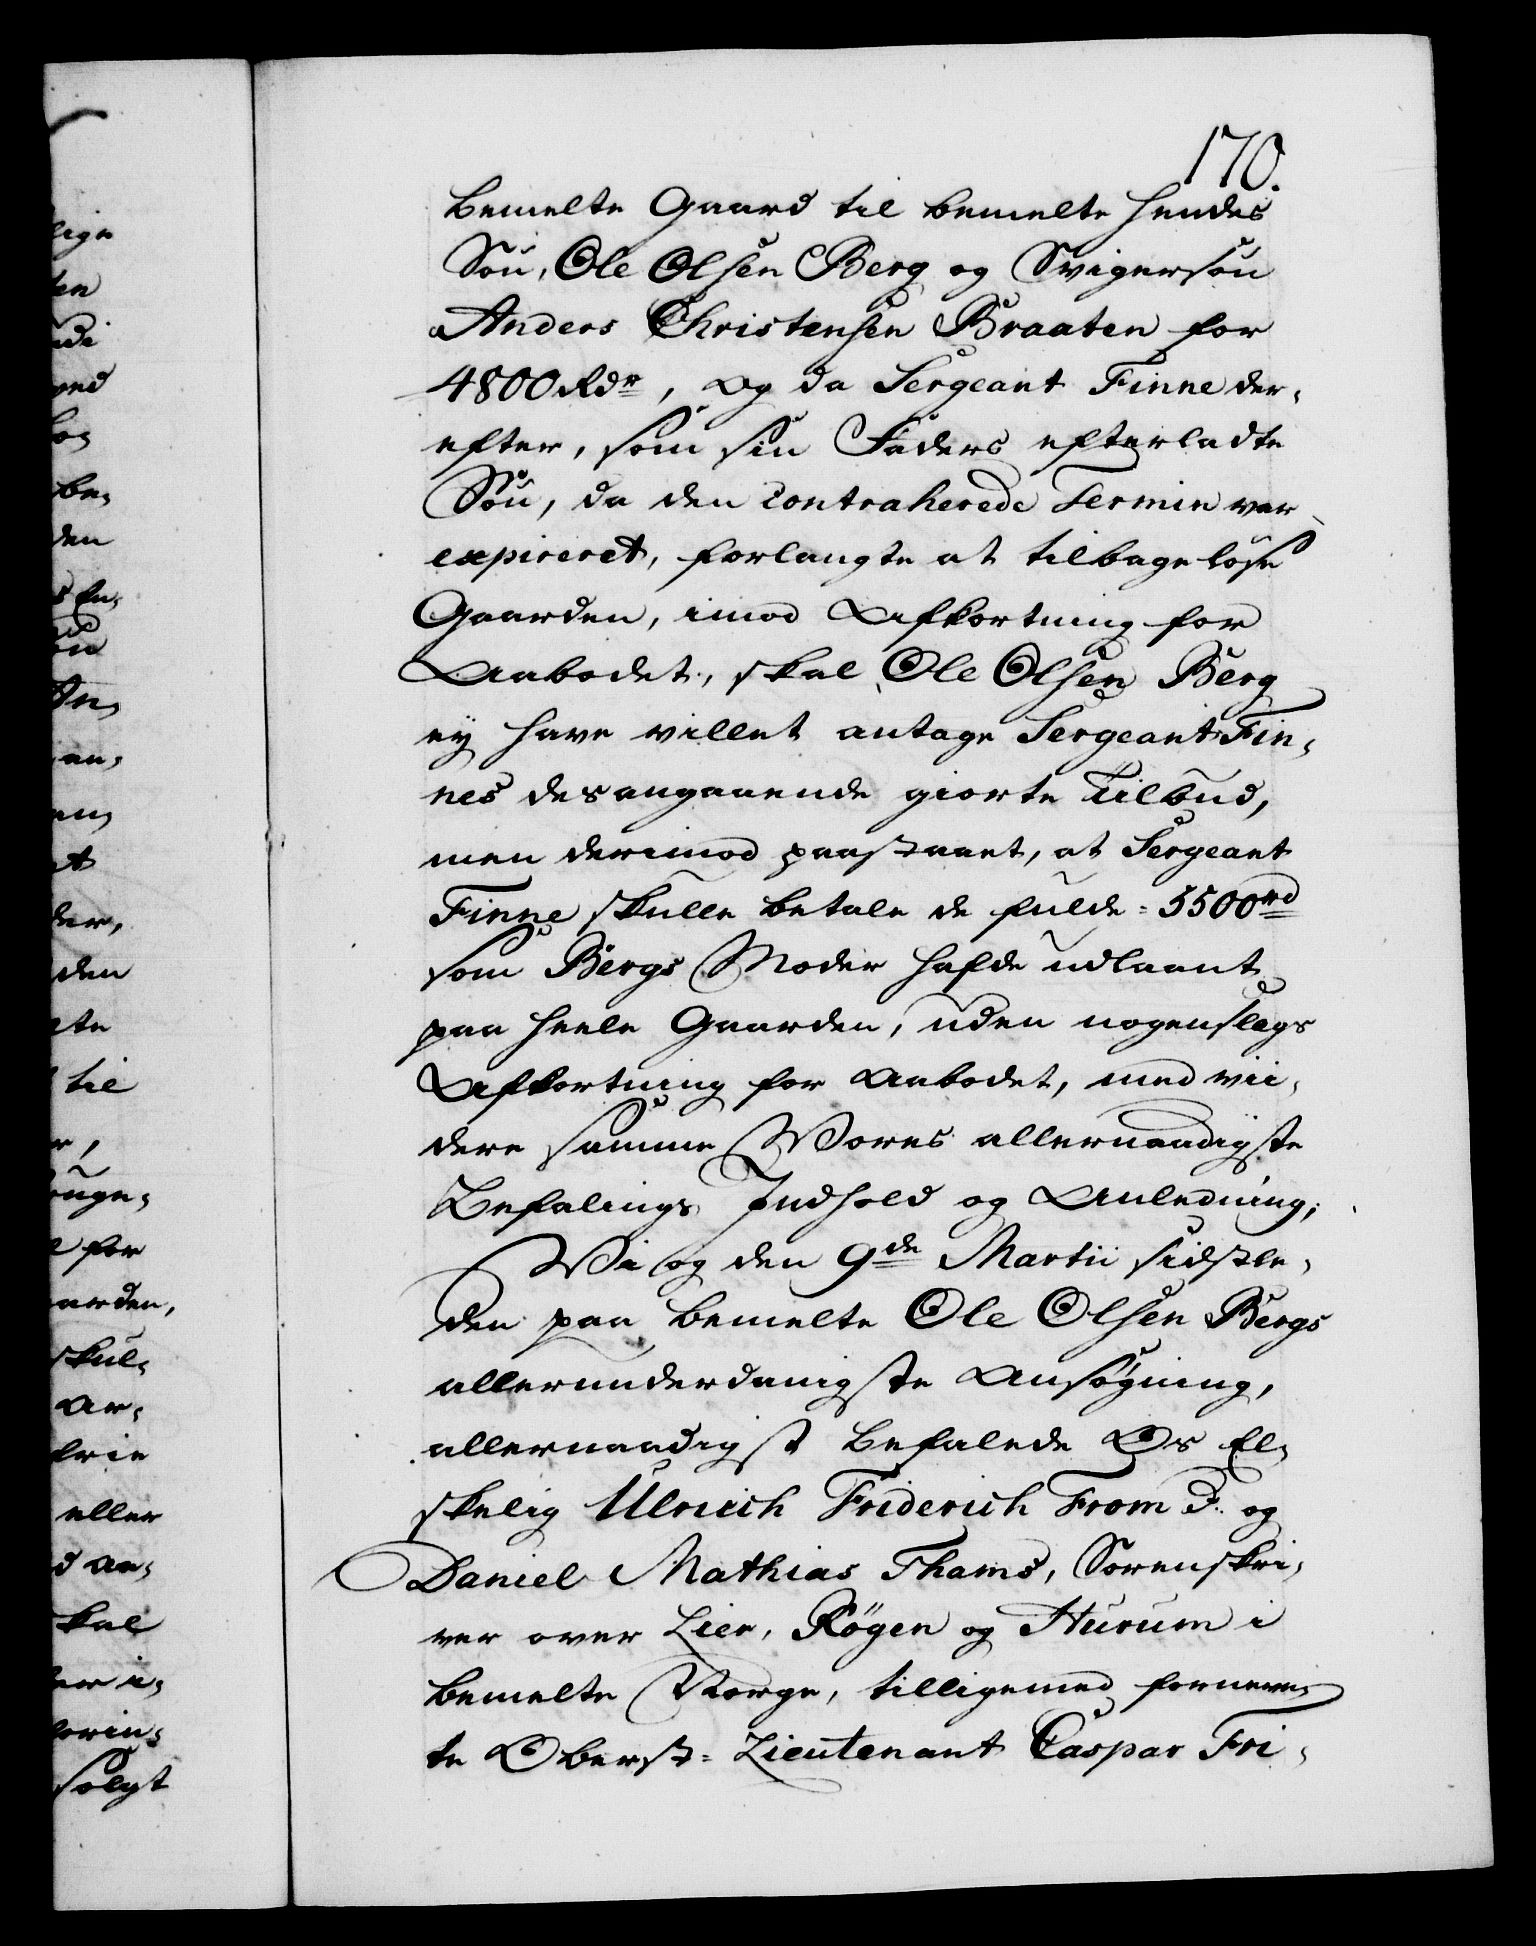 170.
bemelte Gaard til bemelte hendes
Søn, Ole Olsen Berg og Svigersøn
Anders Christensen Braaten for
4800 Rdr, og da Sergeant Finne der-
efter, som sin Faders efterladte
Søn, da den contraherede Termin var
expireret, forlangte at tilbage løse
Gaarden, imod Afkortning for
Aabodet, skal Ole Olsen Berg
ey have villet antage Sergeant Fin-
nes desangaaende giorte Tilbud,
men derimod paastaaet, at Sergeant
Finne skulle betale de fulde 5500 rd
som Bergs Moder hafde udlaant
paa heele Gaarden, uden nogenslags
Afkortning for Aabodet, med vii-
dere samme Vores allernaadigste
Befalings Indhold og Anledning;
Vi og den 9de Martii sidstle-
den paa bemelte Ole Olsen Bergs
allerunderdanigste Ansøgning,
allernaadigst befalede Os El-
skelig Ulrich Friderich From D. og
Daniel Mathias Thams, Sorenskri-
ver over Lier, Røgen og Hurum i
bemelte Norge, tilligemed fornevn-
te Oberst-Lieutenant Caspar Fri-
lige
ten
med
be-
den
an-
der,
den
til
er,
for
aarden,
skul-
Ar-
eller
skal
solgt